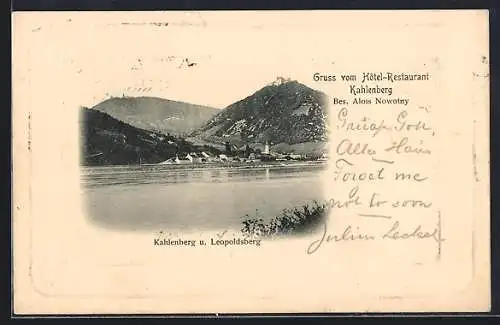 Gruss vom Hôtel-Restaurant
Kahlenberg
Bes. Alois Nowotny
Grüap Gott,
Altes Haus
Forget me
not to soon
Julius
Kahlenberg u. Leopoldsberg